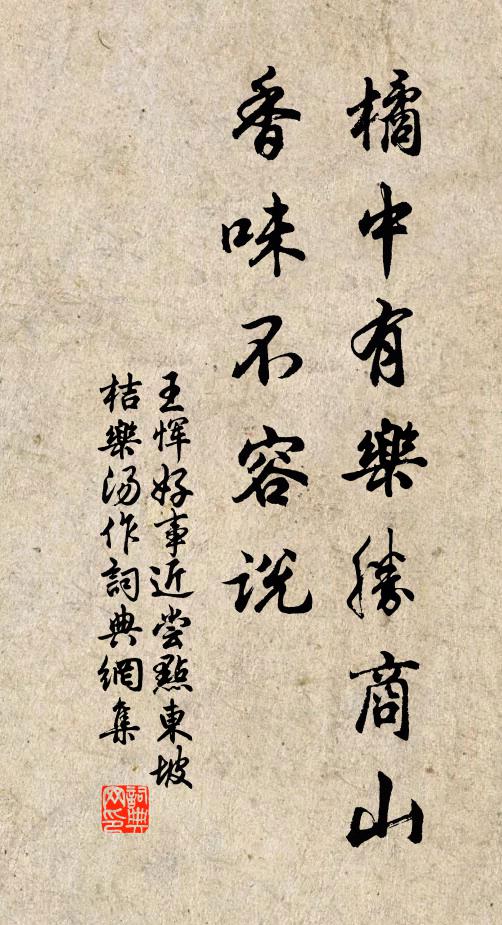 橘中有樂勝商山
香味不容说
王惲好事近尝點東坡
桔樂湯作詞典網集
詞典网印